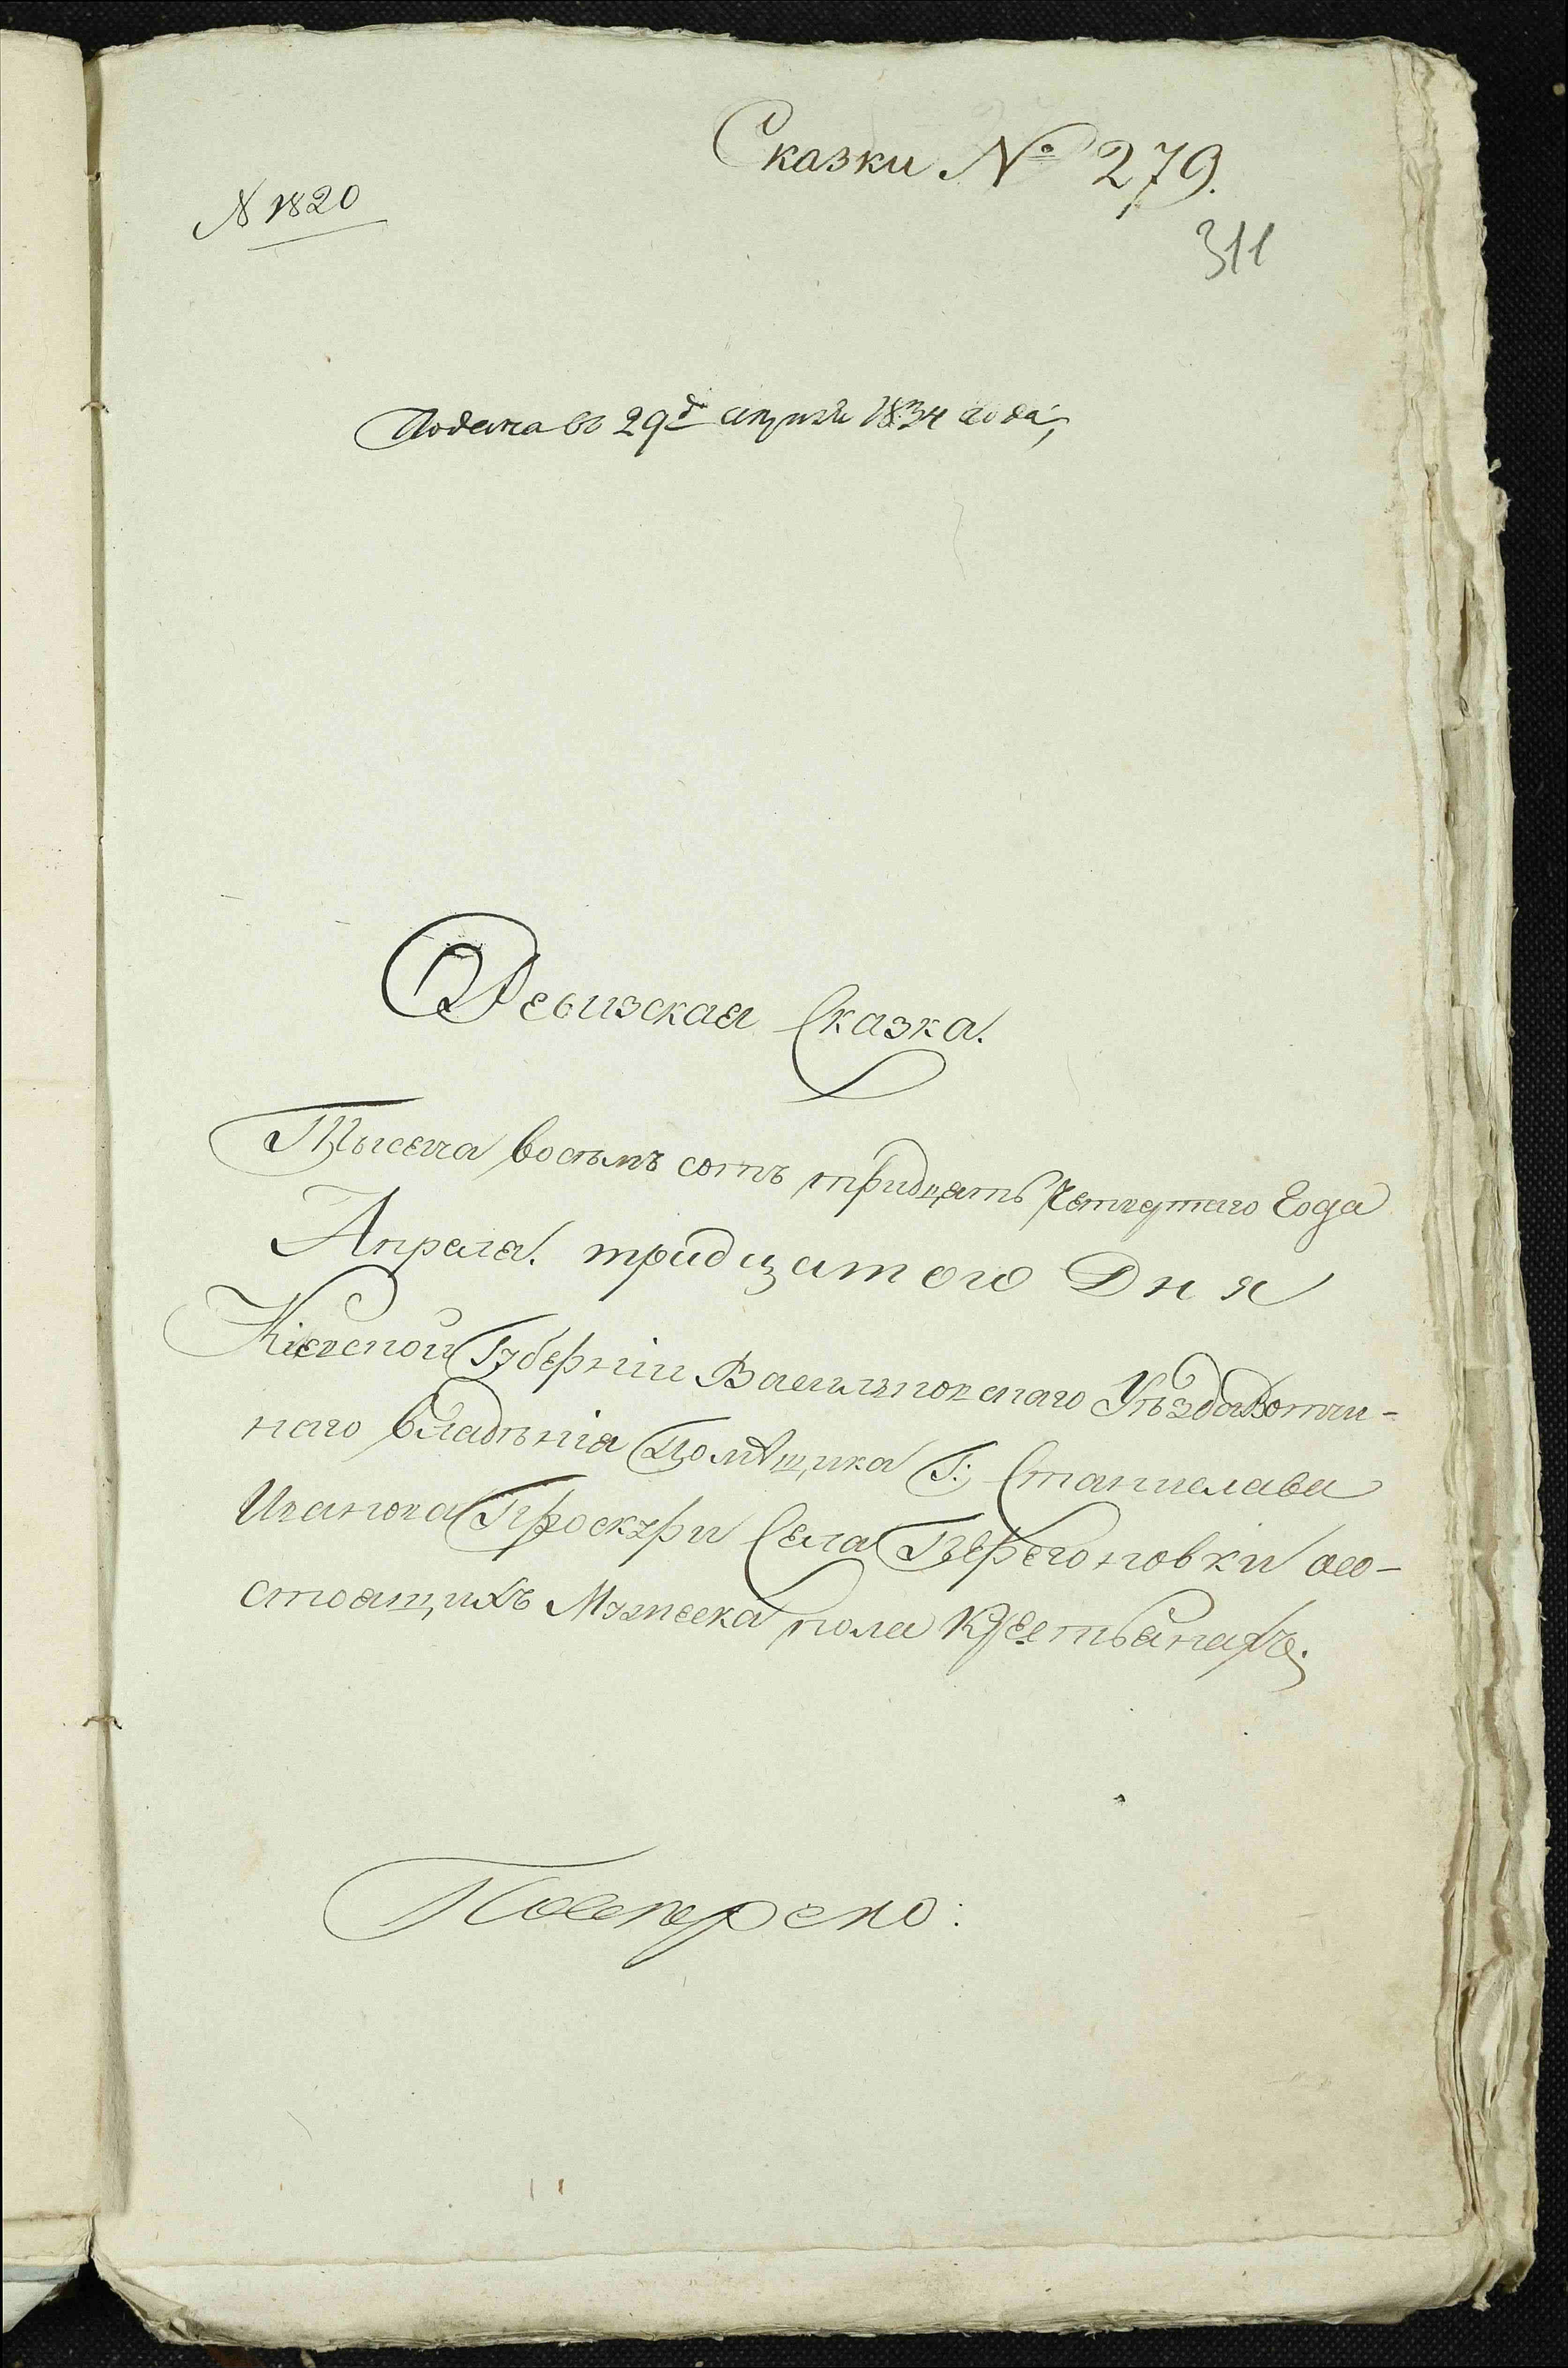 Сказки № 279.
N 1820
311
Подана въ 29д апреля 1834 года,
Ревизская Сказка.
Тысеча восемъ сотъ тридцать Четвертаго Года
Апреля. тридцатого Дня
Кіевской Губерніи Васильковскаго Уѣзда Вотчи-
наго Владѣнія Помѣщика Г: Станислава
Иванова Проскури Села Перегоновки осо-
стоящихъ Мужеска пола Крестьянахъ.